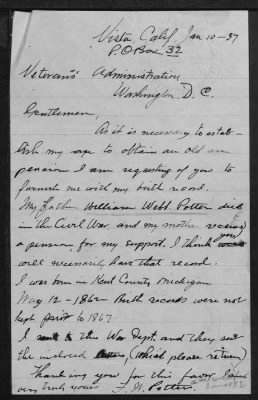 Vista Calif. Jan 10-37
P.O Box 32
Veterans' Administration
Washington D. C.
Gentlemen,
As it is necessary to estab-
lish my age to obtain an old age
pension I am requesting of you to
furnish me with my birth record.
My Father William Webb Potter died
in the Civil War, and my mother received
a pension for my support. I think you
will necessarily have that record.
I was born in Kent County Michigan
May 12 - 1862 Birth records were not
kept prior to 1867
I to the War Dept. and they sent
the inclosed (which please return)
Thanking you for this favor I am
very truly yours F. W. Potter.